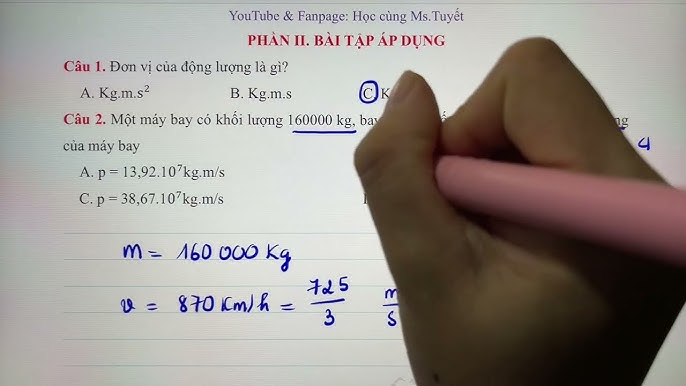 YouTube & Fanpage: Học cùng Ms.Tuyết
PHẦN II. BÀI TẬP ÁP DỤNG
Câu 1. Đơn vị của động lượng là gì?
A. Kg.m.s² B. Kg.m.s C. K
Câu 2. Một máy bay có khối lượng 160000 kg,
của máy bay
A. p = 13,92.10⁷kg.m/s
C. p = 38,67.10⁷kg.m/s
m = 160 000 Kg
v = 870 Km/h = 725/3 m/s